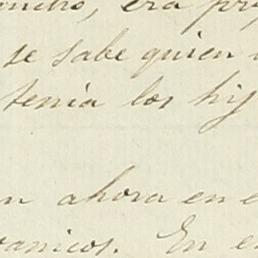 era pr
se sabe quien
tenia los hij
n ahora en e
anicos. En e